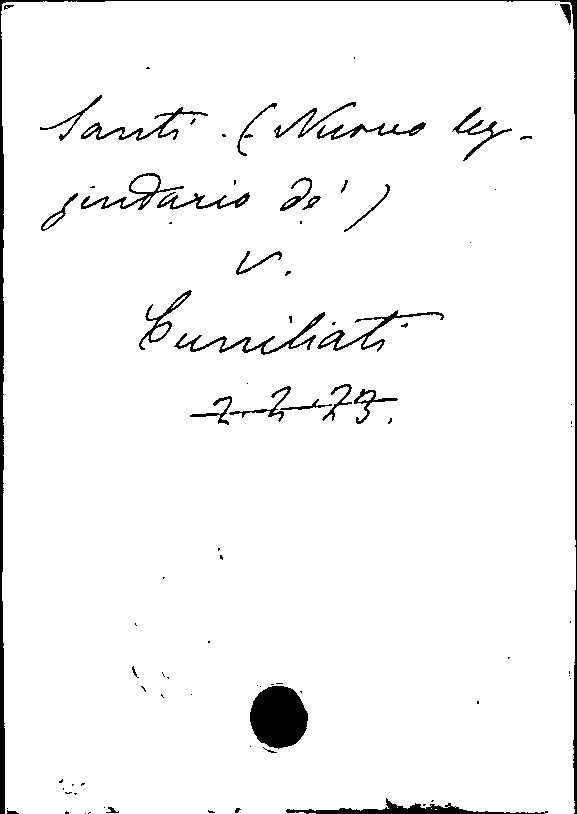 Santi . (Nuovo leg-
gendario de')
V.
Cuniliati
2.2.23.